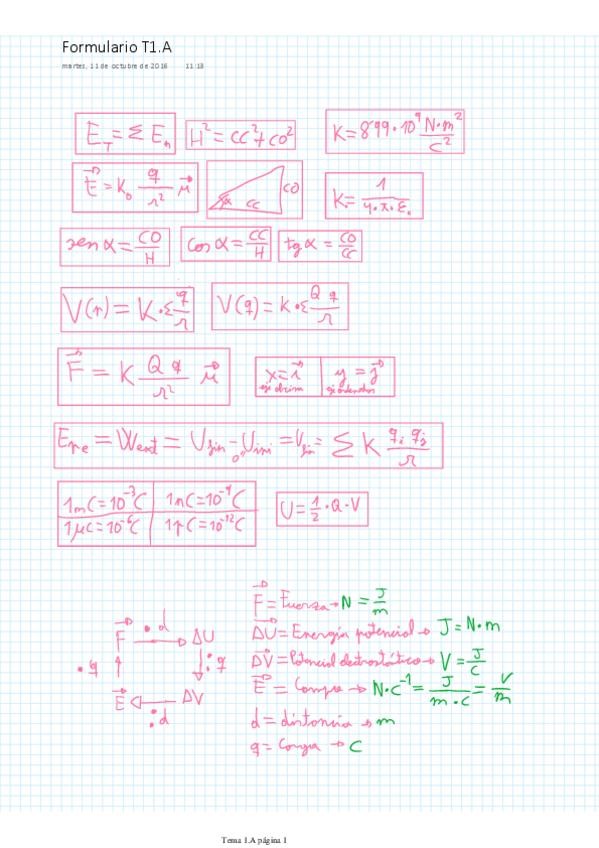 Formulario T1.A
martes, 11 de octubre de 2016 11:13
E_T = Σ E_n H² = CC² + CO² K = 8'99 · 10⁹ N·m²/C²
E⃗ = K₀ q/r² μ⃗ α CC CO K = 1/(4·π·ε₀)
sen α = CO/H cos α = CC/H tg α = CO/CC
V(r) = K · Σ q/r V(q) = K · Σ Q q/r
F⃗ = K Q q/r² μ⃗ x = i⃗ y = j⃗
eje ordenadas
= W_ext = U_fin - U_ini = U_fin = Σ K q_i q_j/r
1mC = 10⁻³C 1nC = 10⁻⁹C
1μC = 10⁻⁶C 1pC = 10⁻¹²C U = 1/2 · Q · V
F⃗ = Fuerza → N = J/m
F⃗ · d → ΔU
ΔU⃗ = Energía potencial → J = N·m
· q · q
ΔV⃗ = Potencial electrostático → V = J/C
E⃗ ← ΔV
E⃗ = Campo → N·C⁻¹ = J/(m·C) = V/m
· d
d = distancia → m
q = Carga → C
Tema 1.A página 1